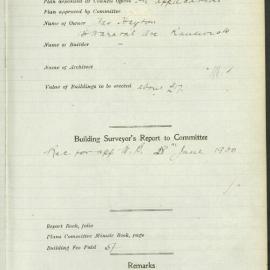 Plan deposited at Council Office
Plan approved by Committee
Name of Owner Geo Heyton
Name of Builder
Name of Architect
Value of Buildings to be erected about £
Building Surveyor's Report to Committee
Rec for app W.C. June 1930
Report Book, folio
Plans Committee Minute Book, page
Building Fee Paid 5/-
Remarks